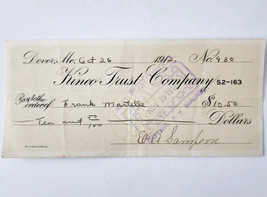 Dover, Me. Oct 26 1912. No. 930
Kineo Trust Company 52-163
Pay to the
order of Frank Martelle $10.50
Ten and 50/100 Dollars
Sampson